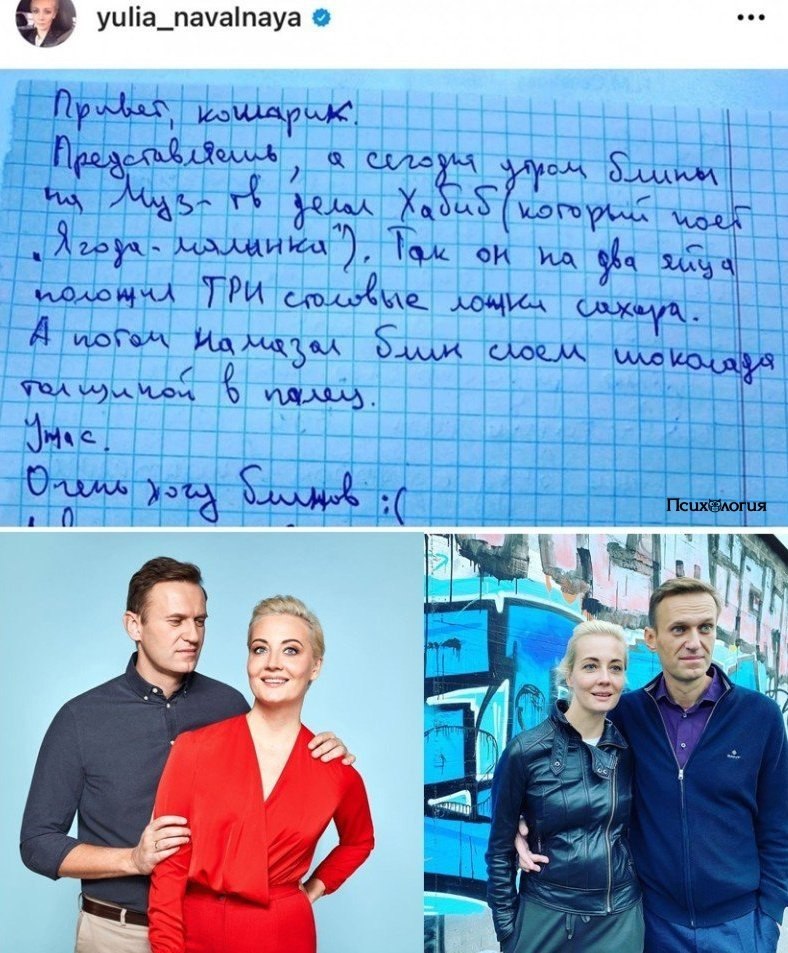 yulia_navalnaya
Привет, кошарик.
Представляешь, а сегодня утром блины
на Муз-тв делал Хабиб (который поёт
"Ягода-малинка"). Так он на два яйца
положил ТРИ столовые ложки сахара.
А потом намазал блин слоем шоколада
толщиной в палец.
Ужас.
Очень хочу блинов :(
Психология